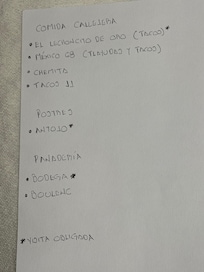 COMIDA CALLEJERA
* EL LECHONCITO DE ORO (TACOS)*
• MÉXICO 68 (TLAYUDAS Y TACOS)
• CHEPITO
• TACOS 11
POSTRES
• ANTOJO*
PANADERIA
• BODEGA*
• BOULENC
* VISITA OBLIGADA